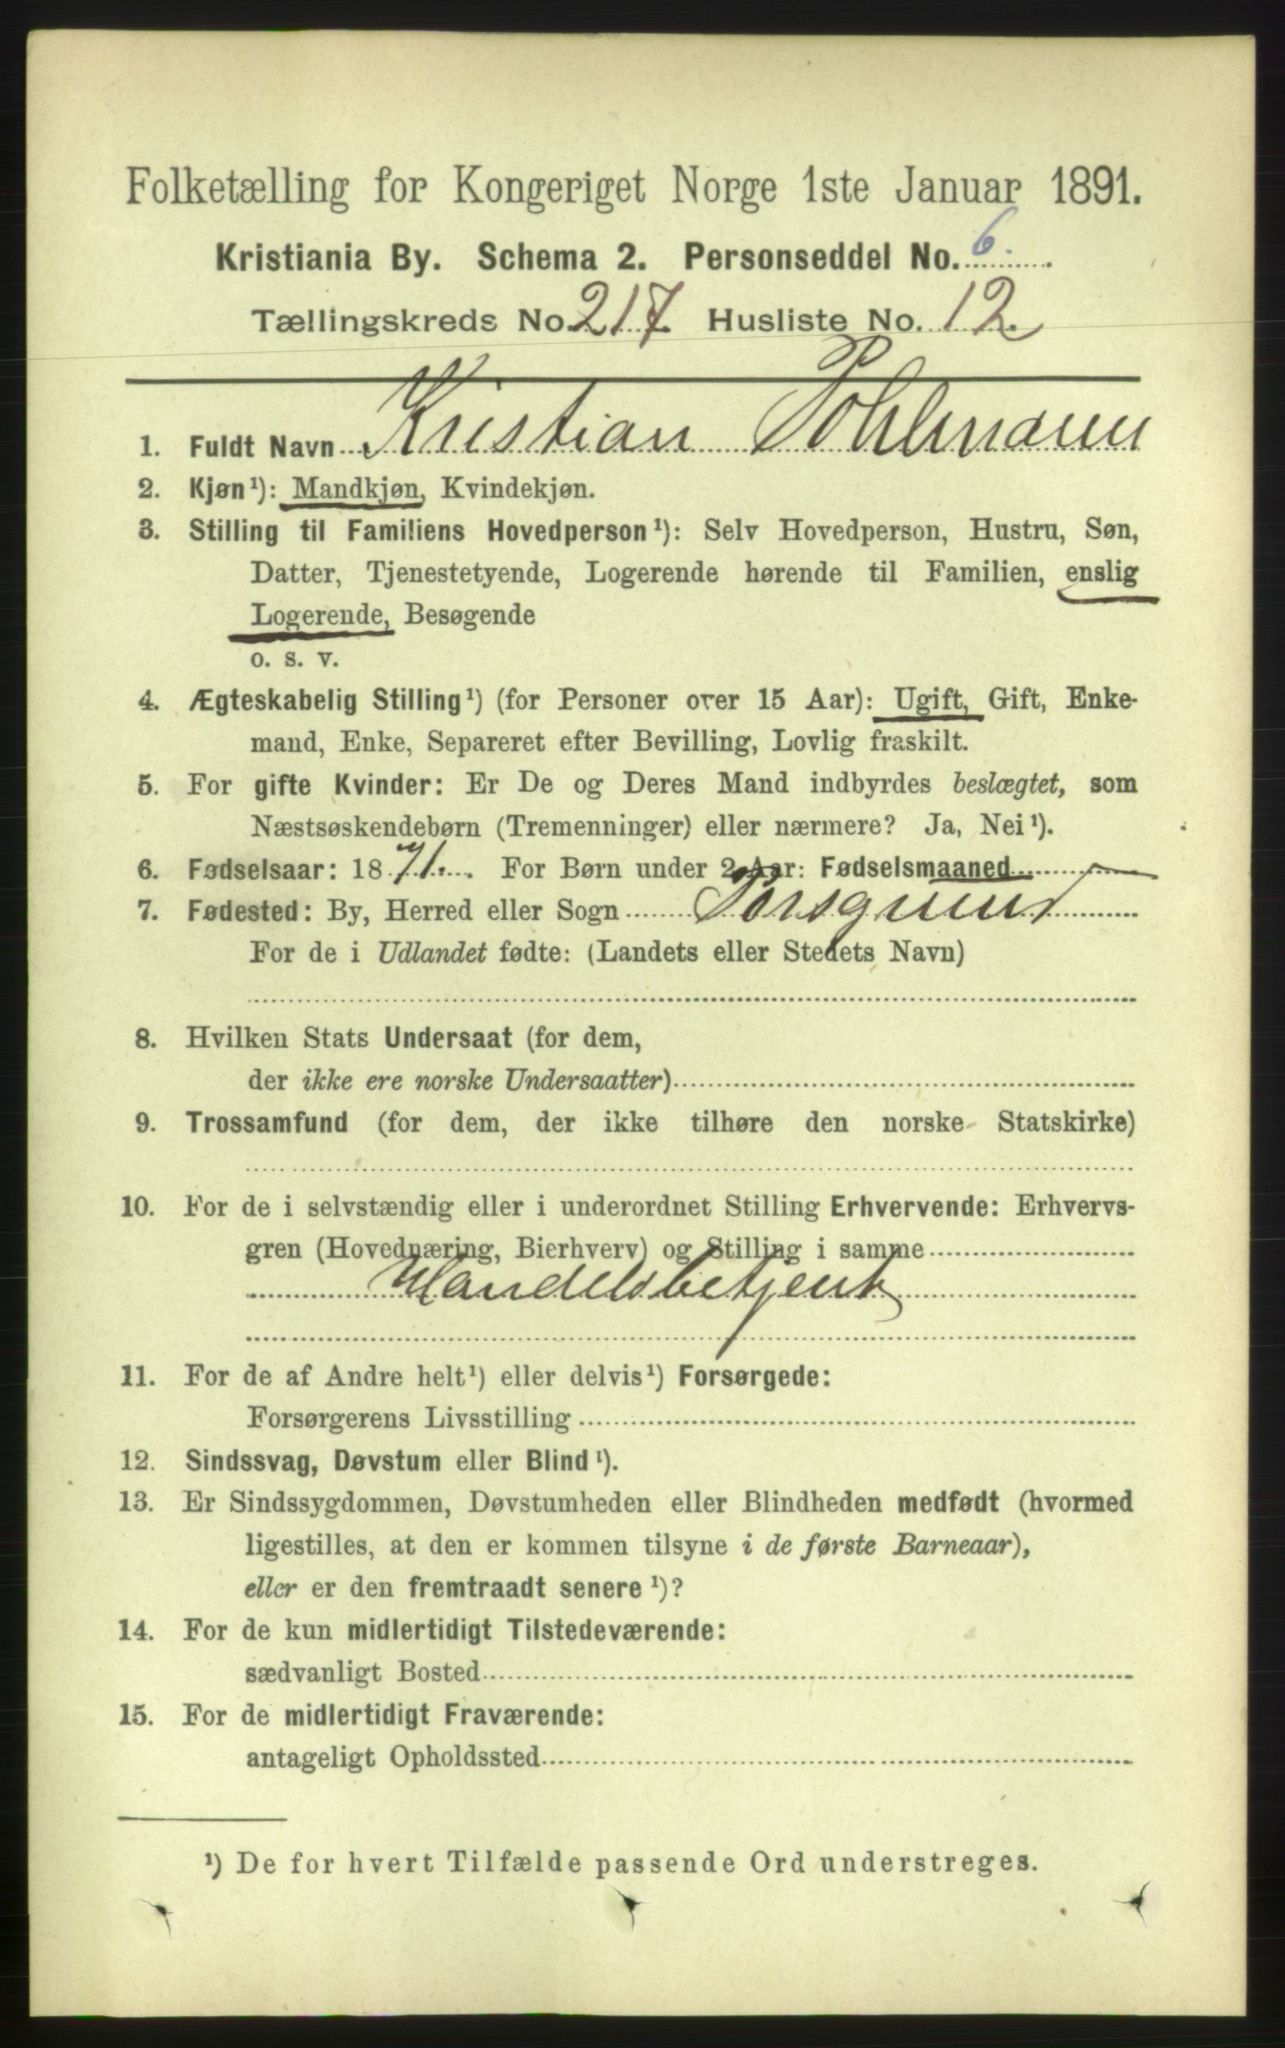 Folketælling for Kongeriget Norge 1ste Januar 1891.
Kristiania By. Schema 2. Personseddel No. 6.
Tællingskreds No. 217. Husliste No. 12.
1. Fuldt Navn Kristian Pohlmann
2. Kjøn¹): Mandkjøn, Kvindekjøn.
3. Stilling til Familiens Hovedperson¹): Selv Hovedperson, Hustru, Søn,
Datter, Tjenestetyende, Logerende hørende til Familien, enslig
Logerende, Besøgende
o. s. v.
4. Ægteskabelig Stilling¹) (for Personer over 15 Aar): Ugift, Gift, Enke-
mand, Enke, Separeret efter Bevilling, Lovlig fraskilt.
5. For gifte Kvinder: Er De og Deres Mand indbyrdes beslægtet, som
Næstsøskendebørn (Tremenninger) eller nærmere? Ja, Nei¹).
6. Fødselsaar: 1871. For Børn under 2 Aar: Fødselsmaaned
7. Fødested: By, Herred eller Sogn Porsgrund
For de i Udlandet fødte: (Landets eller Stedets Navn)
8. Hvilken Stats Undersaat (for dem,
der ikke ere norske Undersaatter)
9. Trossamfund (for dem, der ikke tilhøre den norske Statskirke)
10. For de i selvstændig eller i underordnet Stilling Erhvervende: Erhvervs-
gren (Hovednæring, Bierhverv) og Stilling i samme
Handelsbetjent
11. For de af Andre helt¹) eller delvis¹) Forsørgede:
Forsørgerens Livsstilling
12. Sindssvag, Døvstum eller Blind¹).
13. Er Sindssygdommen, Døvstumheden eller Blindheden medfødt (hvormed
ligestilles, at den er kommen tilsyne i de første Barneaar),
eller er den fremtraadt senere¹)?
14. For de kun midlertidigt Tilstedeværende:
sædvanligt Bosted
15. For de midlertidigt Fraværende:
antageligt Opholdssted
¹) De for hvert Tilfælde passende Ord understreges.